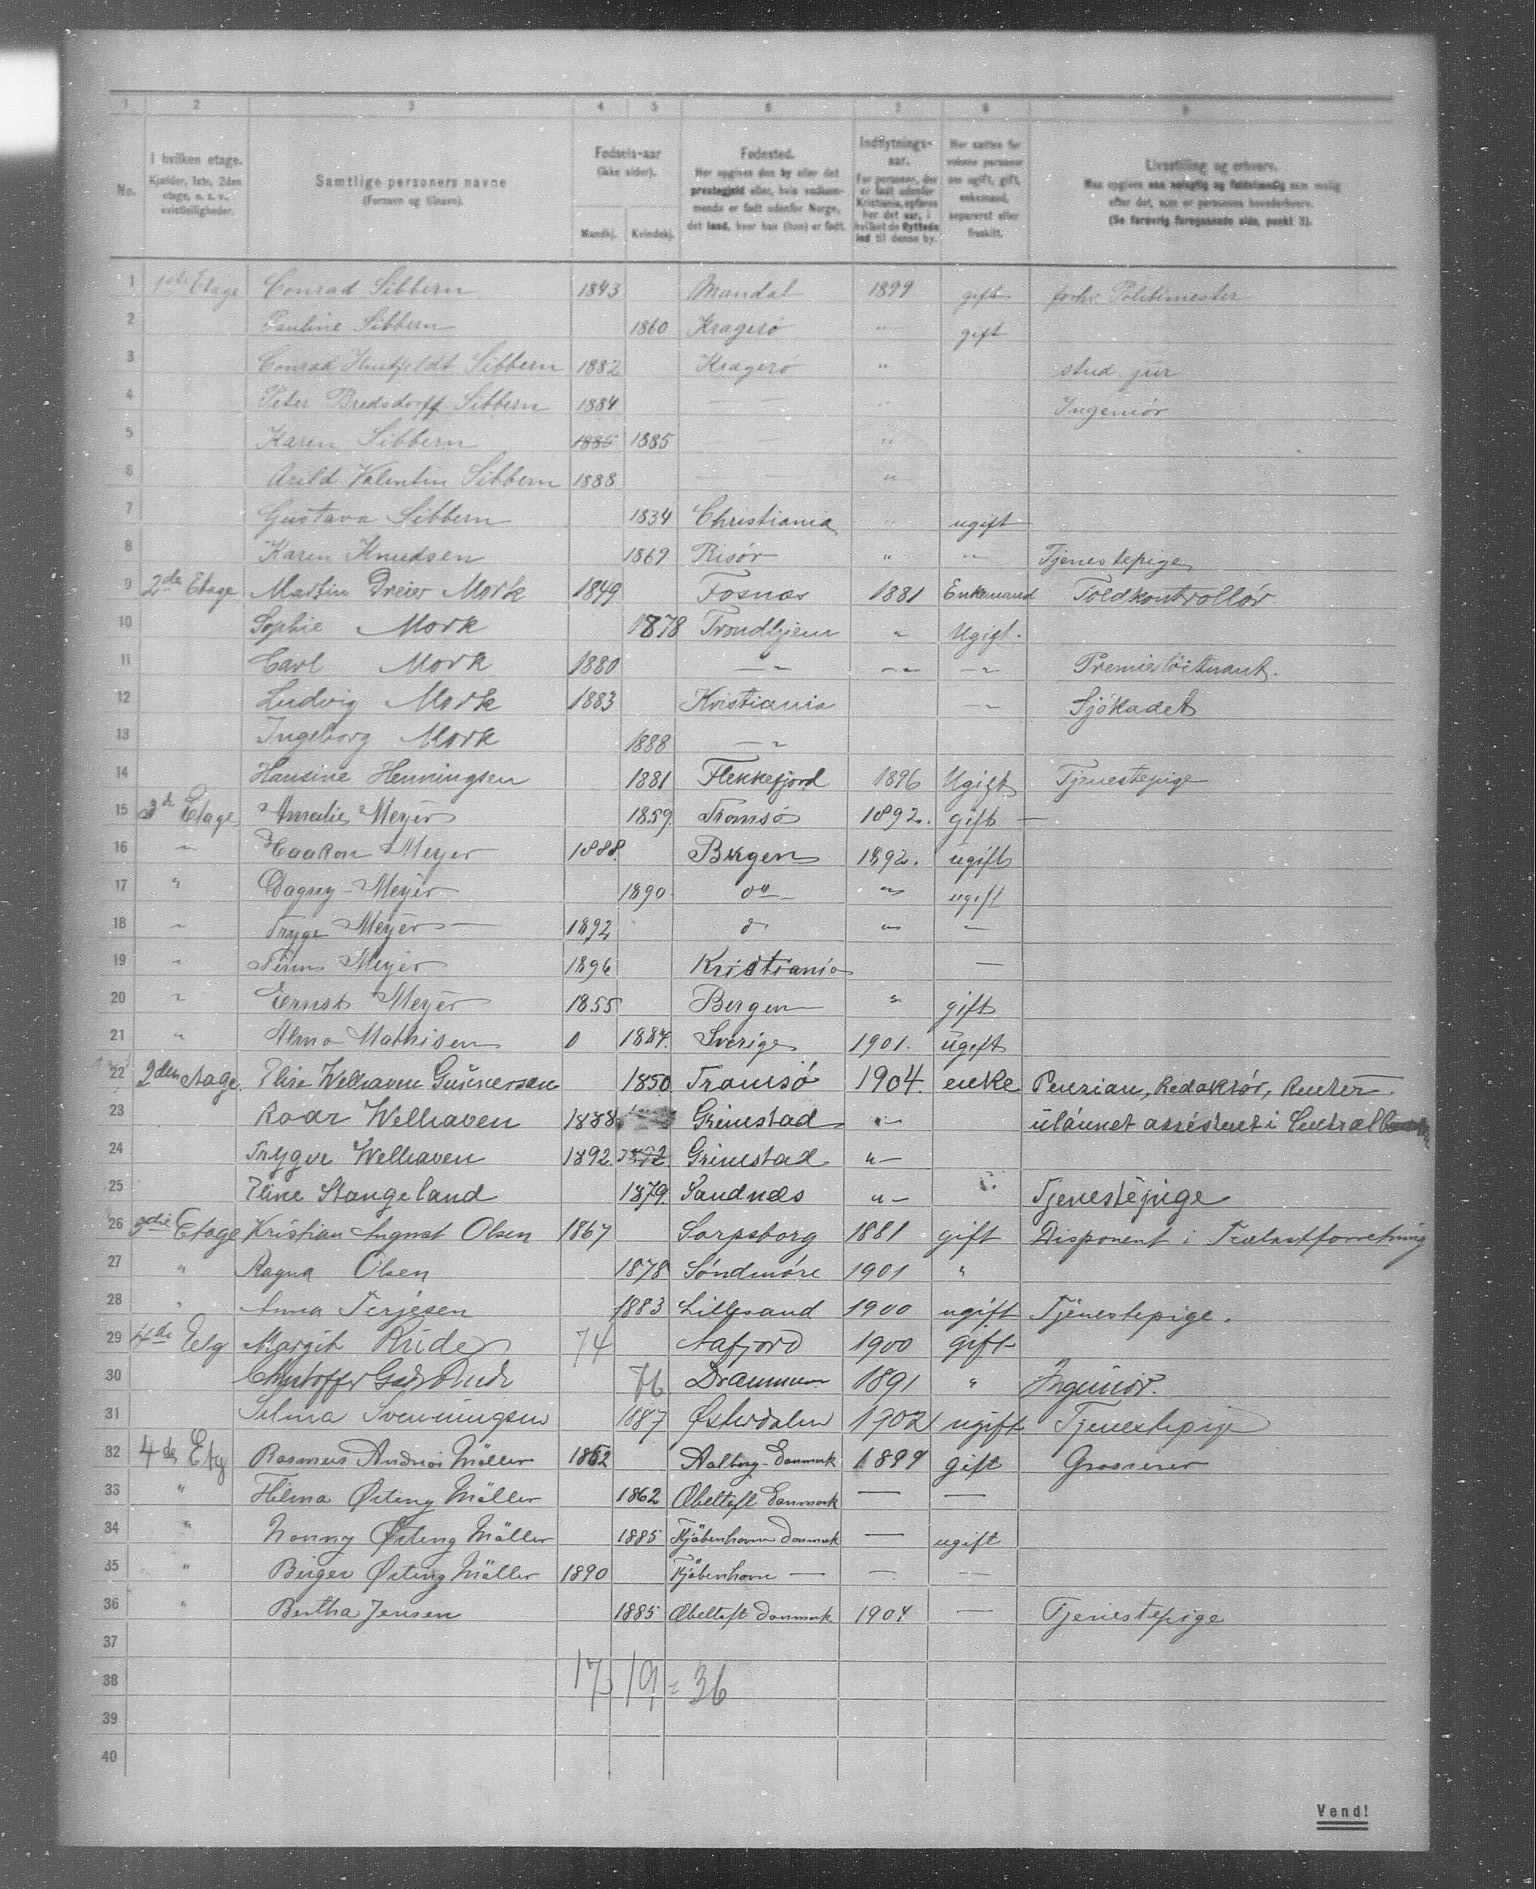 1 2 3 4 5 6 7 8 9
No. I hvilken etage. Kjælder, 1ste, 2den etage, o. s. v., kvistleiligheder. Samtlige personers navne (Fornavn og tilnavn). Fødsels-aar (ikke alder). Mandkj. Kvindekj. Fødested. Her opgives den by eller det præstegjeld eller, hvis vedkommende er født udenfor Norge, det land, hvor han (hun) er født. Indflytnings-aar. For personer, der er født udenfor Kristiania, opføres her det aar, i hvilket de flyttede ind til denne by. Her sættes for voksne personer om ugift, gift, enkemand, separeret eller fraskilt. Livsstilling og erhverv. Maa opgives saa nøiagtig og fuldstændig som mulig efter det, som er personens hovederhverv. (Se forøvrig foregaaende side, punkt 5).
1 1ste Etage Conrad Sibbern 1843 Mandal 1899 gift forhv. Politimester
2 Pauline Sibbern 1860 Kragerø " gift
3 Conrad Huitfeldt Sibbern 1882 Kragerø " stud. jur
4 Peter Bredsdorff Sibbern 1884 — — " Ingeniør
5 Karen Sibbern 1885 1885 — "
6 Arild Valentin Sibbern 1888 — "
7 Gustava Sibbern 1834 Christiania " ugift
8 Karen Knudsen 1869 Risør " " Tjenestepige
9 2de Etage Martin Dreier Mork 1849 Fosnæs 1881 Enkemand Toldkontrollør
10 Sophie Mork 1878 Trondhjem " Ugift.
11 Carl Mork 1880 — " — " — " Premierløitnant.
12 Ludvig Mork 1883 Kristiania — " Sjökadet
13 Ingeborg Mork 1888 — "
14 Hansine Henningsen 1881 Flekkefjord 1896 Ugift Tjenestepige
15 3de Etage Amalie Meyer 1859. Tromsö 1892. gift —
16 " Haakon Meyer 1888. Bergen 1892. ugift
17 " Dagny Meyer 1890 do — " ugift
18 " Trygve Meyer — 1892 do " —
19 " Finn Meyer 1896 Kristiania —
20 " Ernst Meyer 1855 Bergen " gift
21 " Alma Mathisen 0 1884. Sverige 1901. ugift
22 2den etage. Elise Welhaven Gunnersen 1850 Tromsö 1904. enke Pension, Redaktør, Renter.
23 Roar Welhaven 1888 Grimstad " — ulønnet assistent i Central
24 Trygve Welhaven 1892 1892 Grimstad " —
25 Eline Stangeland 1879. Sandnæs " — Tjenestepige
26 3die Etage Kristian August Olsen 1867 Sarpsborg 1881 gift Disponent i Trælastforretning
27 " Ragna Olsen 1878 Søndmøre 1901 "
28 " Anna Terjesen 1883 Lillesand 1900 ugift Tjenestepige.
29 4de Etg Margit Rude 74 Aafjord 1900 gift
30 Christoffer Rude 76 Drammen 1891 " Ingeniør.
31 Selma Svenningsen 1887 Østerdalen 1902 ugift Tjenestepige
32 4de Etg Rasmus Andrias Möller 1862 Aalborg - Danmark 1899 gift Grosserer
33 " Hilma Østing Möller 1862 Æbeltoft Danmark — —
34 " Nonny Østing Möller 1885 Kjöbenhavn Danmark — ugift
35 " Birger Østing Möller 1890 Kjöbenhavn — — —
36 " Bertha Jensen 1885 Æbeltoft Danmark 1904 — Tjenestepige
37
38 17 19 = 36
39
40
Vend!